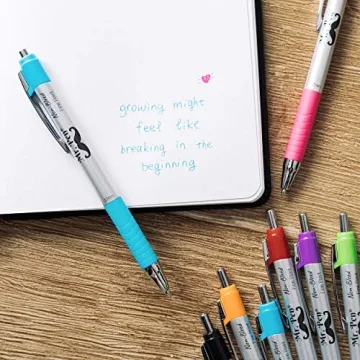 growing might
feel like
breaking in the
beginning
Mr. Pen
Mr. Pen
Mr. Pen